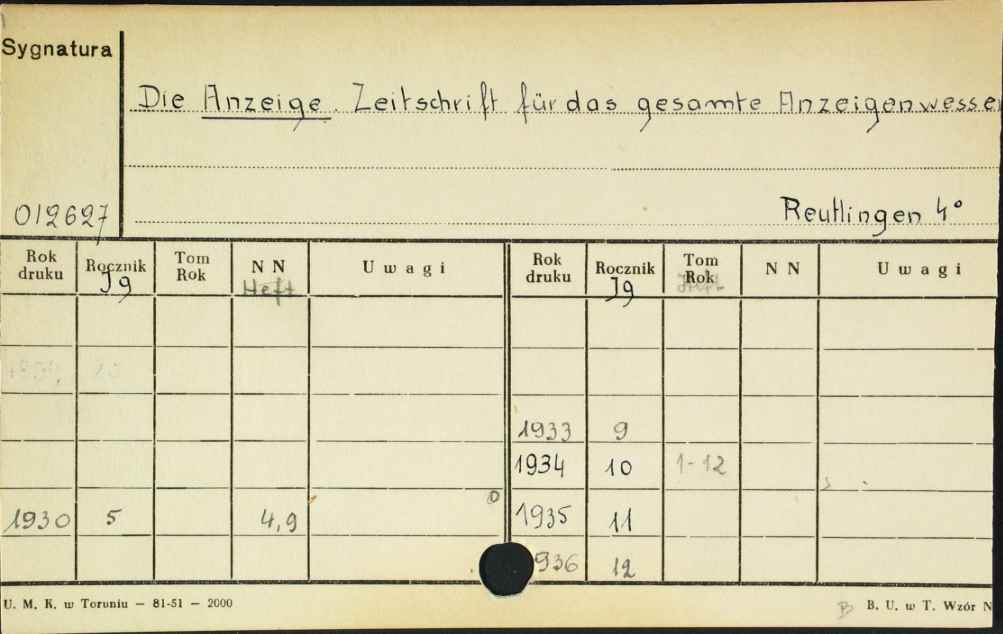 Sygnatura
Die Anzeige. Zeitschrift für das gesamte Anzeigenwessen
012627
Reutlingen 4°
Rok druku Rocznik Tom Rok N N Uwagi Rok druku Rocznik Tom Rok N N Uwagi
Jg Heft Jg
1933 9
1934 10 1-12
1930 5 4,9 1935 11
936 12
U. M. K. w Toruniu — 81-51 — 2000 B. U. w T. Wzór N